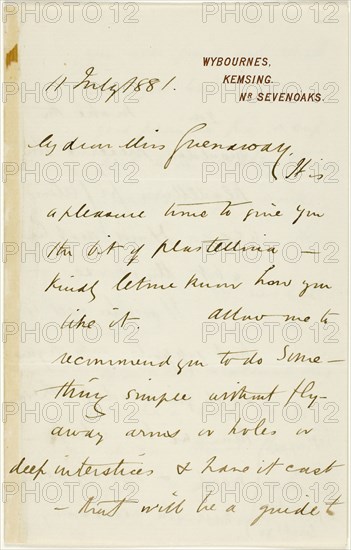 WYBOURNES,
KEMSING.
NR SEVENOAKS.
11 July 1881.
My dear Miss Greenaway,
It is
a pleasure to me to give you
the bit of plastellina —
kindly let me know how you
like it. Allow me to
recommend you to do some-
thing simple without fly-
away arms or holes or
deep interstices & have it cast
— that will be a guide to